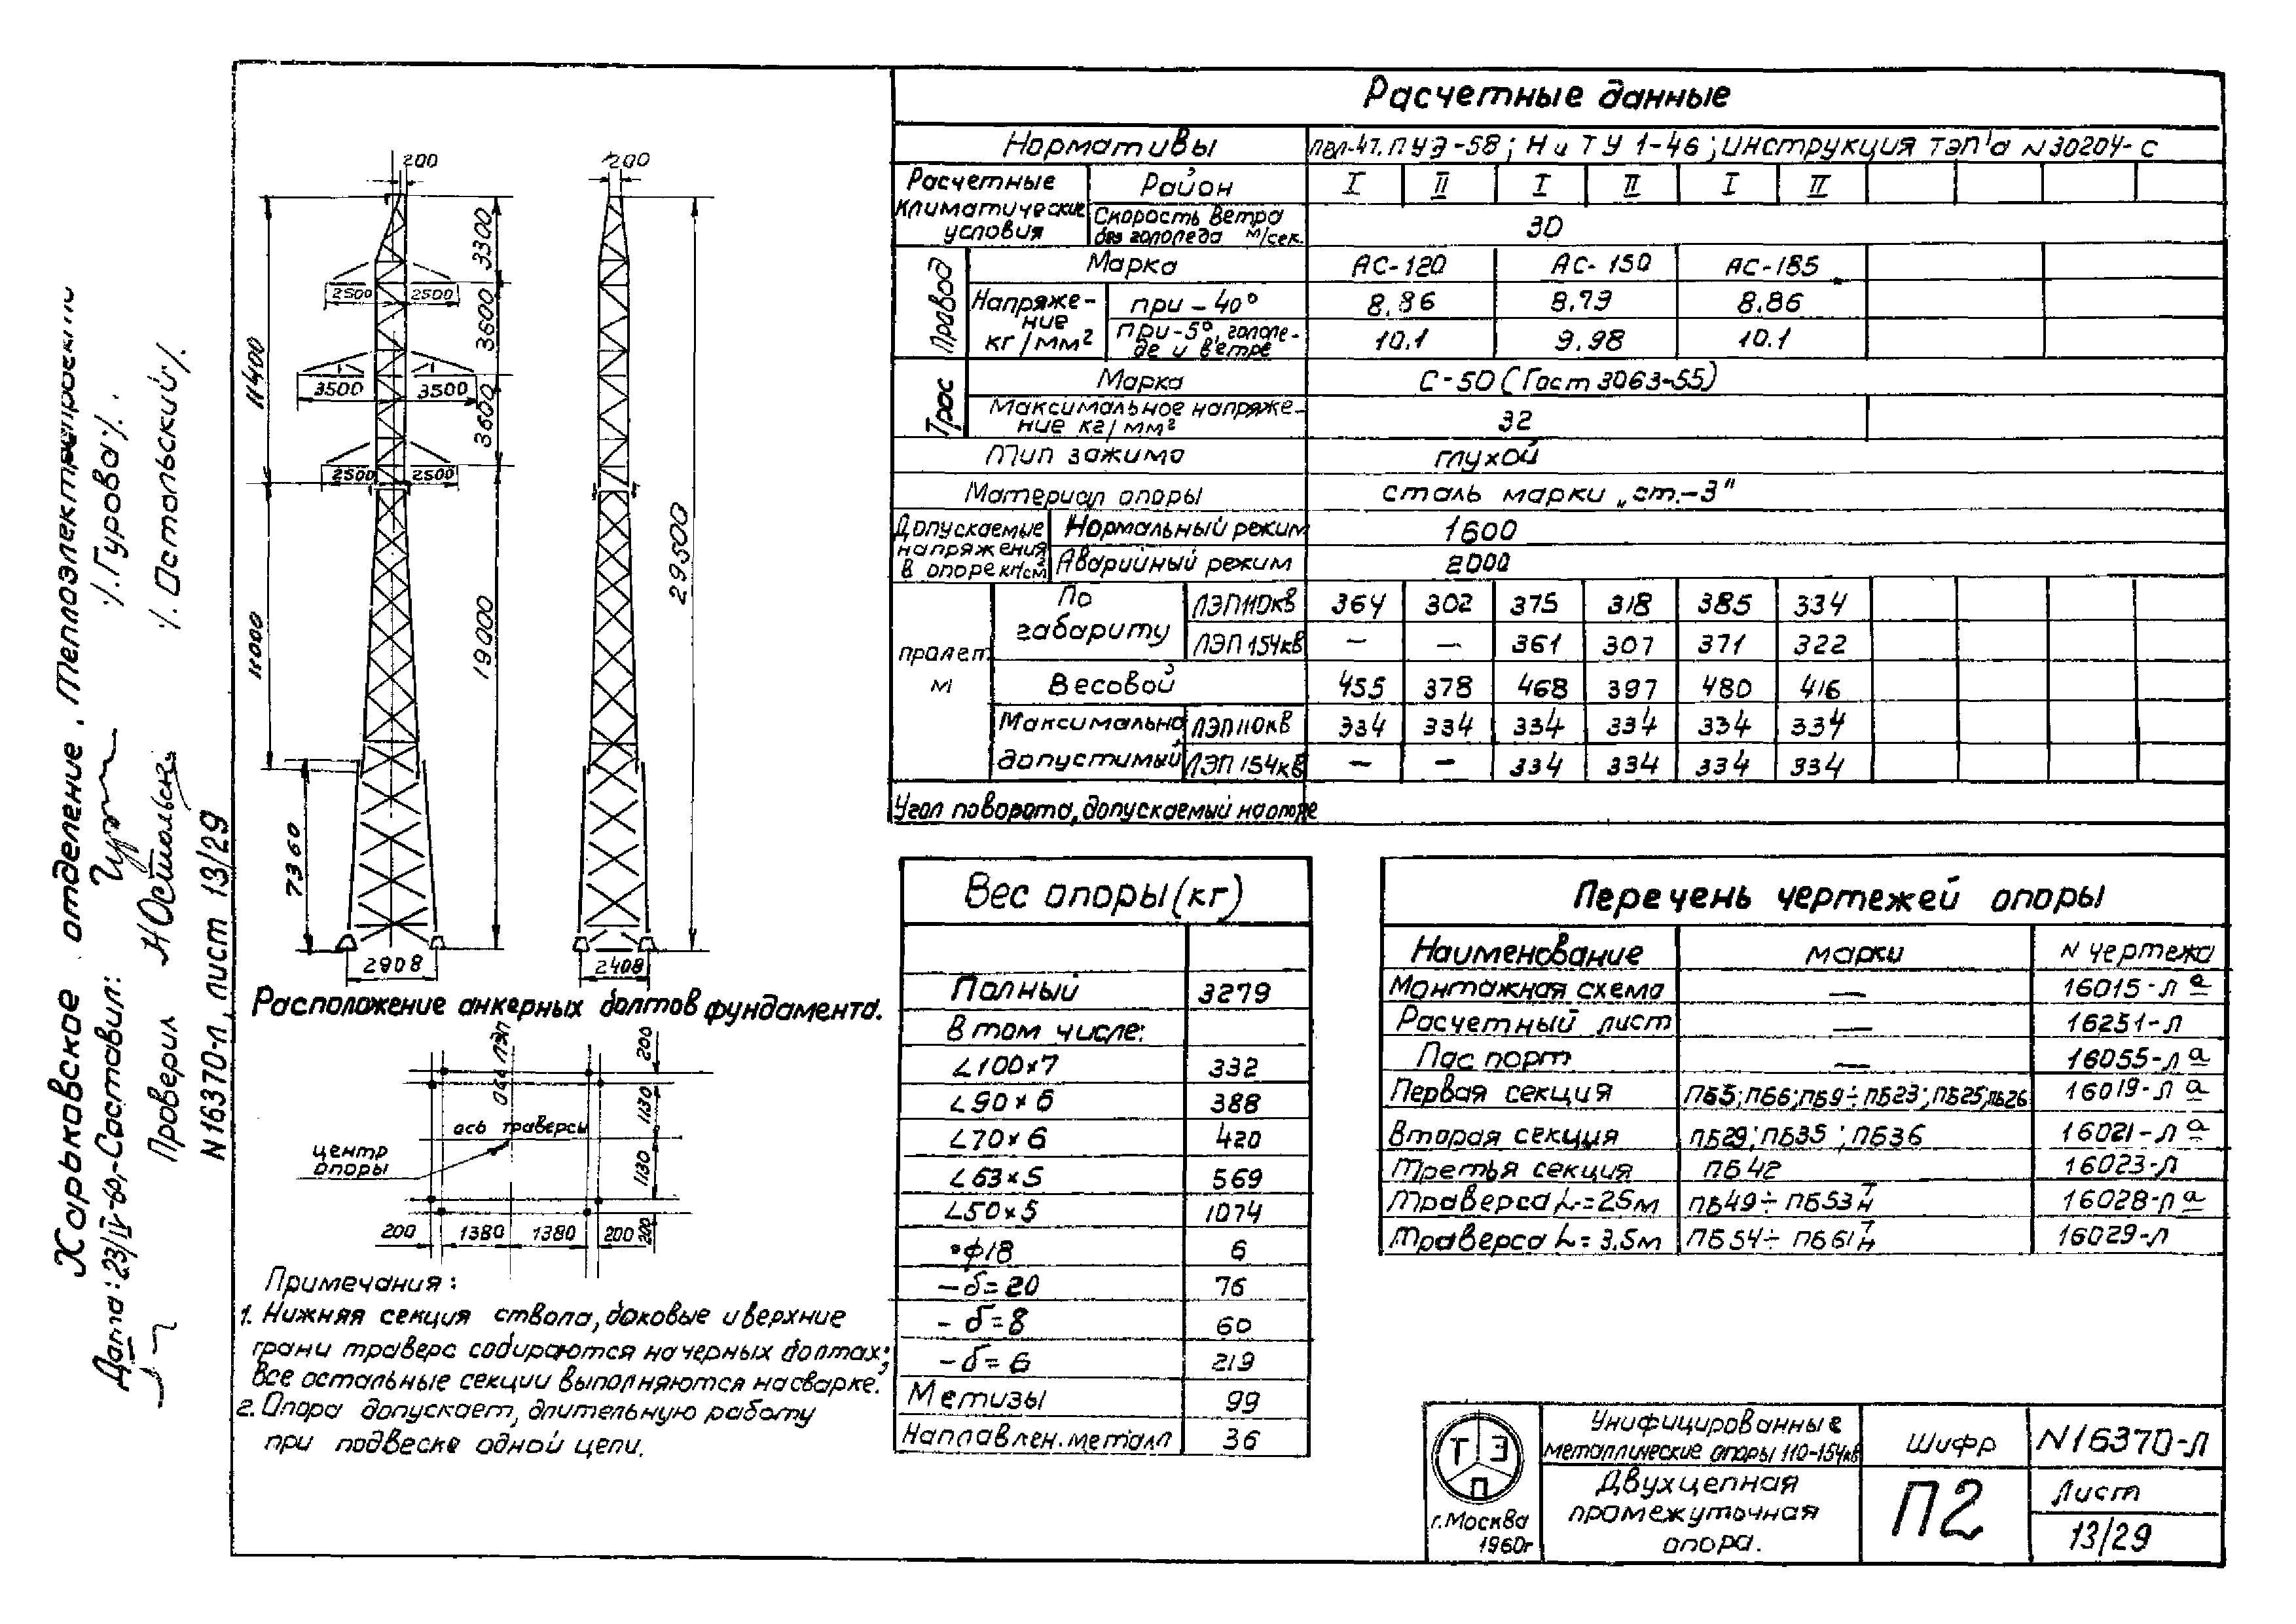 Харьковское отделение „Теплоэлектропроект"
Дата: 23/IV-60,-Составил: /.Гурова/.
Проверил Н Остольский /.Остольский/.
N16370-л, лист 13/29
200
200
11400
11000
7360
3300
3600
3600
19000
29500
2500 2500
3500 3500
2500 2500
2908
2408
Расположение анкерных болтов фундамента.
ось ЛЭП
ось траверсы
центр
опоры
200
1130
1130
200
200 1380 1380 200
Примечания:
1. Нижняя секция ствола, боковые и верхние
грани траверс собираются на черных болтах;
Все остальные секции выполняются на сварке.
2. Опора допускает, длительную работу
при подвеске одной цепи.
Расчетные данные
Нормативы ПВЛ-47. ПУЭ-58; Н и ТУ 1-46; инструкция ТЭП'а N30204-с
Расчетные Климатические условия Район I II I II I II
Скорость ветра без гололеда м/сек. 30
Провод Марка АС-120 АС-150 АС-185
Напряжение кг/мм² при -40° 8.86 8.79 8.86
при-5°, гололеде и ветре 10.1 9.98 10.1
Трос Марка С-50 (Гост 3063-55)
Максимальное напряжение кг/мм² 32
Тип зажима глухой
Материал опоры сталь марки „ст.-3"
Допускаемые напряжения в опоре кг/см² Нормальный режим 1600
Аварийный режим 2000
пролет м По габариту ЛЭП110кв 364 302 375 318 385 334
ЛЭП 154кв — — 361 307 371 322
Весовой 455 378 468 397 480 416
Максимально допустимый ЛЭП110кв 334 334 334 334 334 334
ЛЭП 154кв — — 334 334 334 334
Угол поворота, допускаемый на опоре
Вес опоры (кг)
Полный 3279
В том числе:
∠100×7 332
∠90×6 388
∠70×6 420
∠63×5 569
∠50×5 1074
•ф18 6
-δ=20 76
-δ=8 60
-δ=6 219
Метизы 99
Наплавлен. металл 36
Перечень чертежей опоры
Наименование марки N чертежа
Монтажная схема — 16015-л а
Расчетный лист — 16251-л
Паспорт — 16055-л а
Первая секция ПБ5; ПБ6; ПБ9÷ПБ23; ПБ25; ПБ26 16019-л а
Вторая секция ПБ29; ПБ35; ПБ36 16021-л а
Третья секция ПБ42 16023-л
Траверса L=25м ПБ49÷ПБ53 Т/Н 16028-л а
Траверса L=3.5м ПБ54÷ПБ61 Т/Н 16029-л
Т Э П
г.Москва
1960г
Унифицированные
металлические опоры 110-154кв
Двухцепная
промежуточная
опора.
Шифр
П2
N16370-Л
Лист
13/29